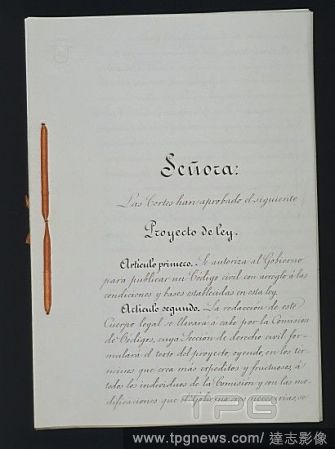 Señora:
Las Cortes han aprobado el siguiente
Proyecto de ley.
Artículo primero. Se autoriza al Gobierno
para publicar un Código civil con arreglo á las
condiciones y bases establecidas en esta ley.
Artículo segundo. La redacción de este
Cuerpo legal se llevará a cabo por la Comisión
de Códigos, cuya Sección de derecho civil for-
mulará el texto del proyecto, oyendo, en los tér-
minos que crea más expeditos y fructuosos, á
todos los individuos de la Comisión y con las mo-
dificaciones que el Gobierno crea necesarias, se
TPG
www.tpgnews.com/ 達志影像